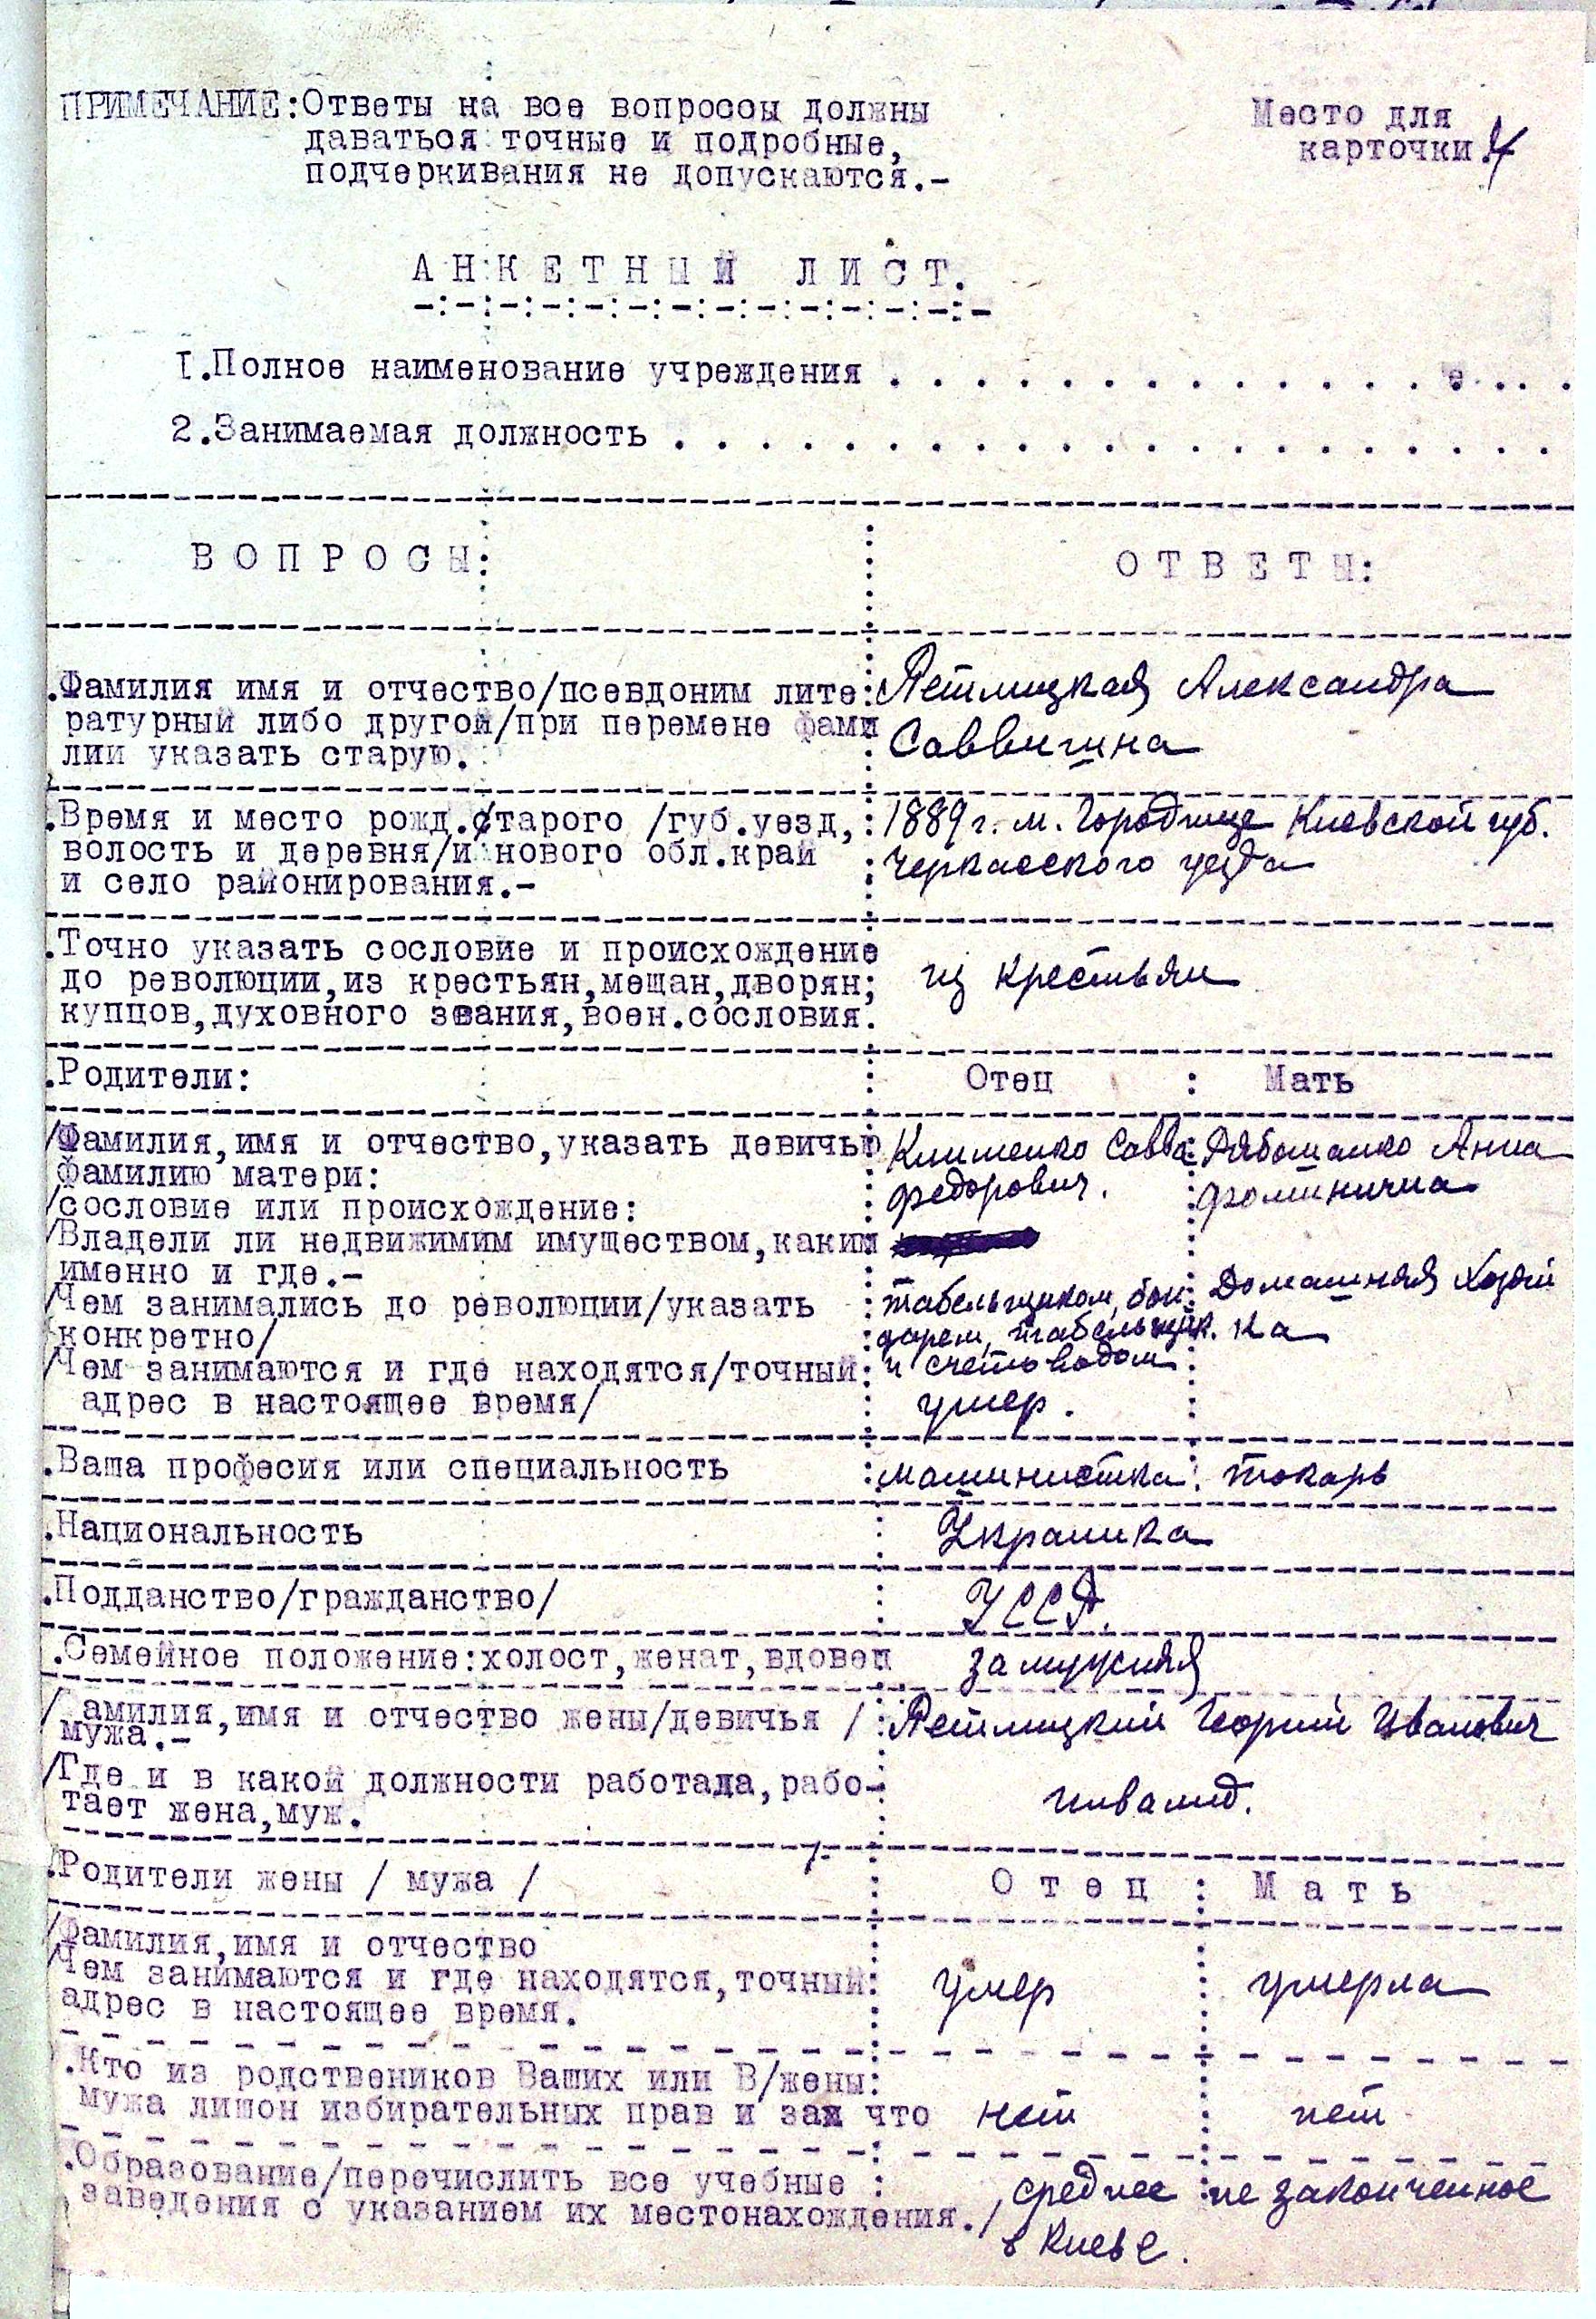 ПРИМЕЧАНИЕ:Ответы на все вопроссы должны
даваться точные и подробные,
подчеркивания не допускаются.-
Место для
карточки.
4
АНКЕТНЫЙ ЛИСТ.
-:-:-:-:-:-:-:-:-
I.Полное наименование учреждения . . . . . . . . . . . . . . . . . . . .
2.Занимаемая должность . . . . . . . . . . . . . . . . . . . . . . . . .
ВОПРОСЫ:
ОТВЕТЫ:
.Фамилия имя и отчество/псевдоним лите
ратурный либо другой/при перемене фами
лии указать старую.
Петлицкая Александра
Саввишна
.Время и место рожд.старого /губ.уезд,
волость и деревня/и нового обл.край
и село районирования.-
1889 г. м. Городище Киевской губ.
Черкасского уезда
.Точно указать сословие и происхождение
до революции,из крестьян,мещан,дворян;
купцов,духовного звания,воен.сословия.
из крестьян
.Родители:
Отец : Мать
/Фамилия,имя и отчество,указать девичью
фамилию матери:
/сословие или происхождение:
/Владели ли недвижимим имуществом,каким
именно и где.-
/Чем занимались до революции/указать
конкретно/
/Чем занимаются и где находятся/точный
адрес в настоящее время/
Клименко Савва
Федорович.
табельщиком, бон
дарем, табельщик.
и счетоводом
умер.
Рябошапко Анна
Фоминична
Домашняя хозяй
ка
.Ваша професия или специальность
машинистка. токарь
.Национальность
Украинка
.Подданство/гражданство/
УССР.
.Семейное положение:холост,женат,вдовец
замужняя
/ амилия,имя и отчество жены/девичья /
мужа.-
Петлицкий Георгий Иванович
/Где и в какой должности работала,рабо-
тает жена,муж.
инвалид.
.Родители жены / мужа /
Отец : Мать
/Фамилия,имя и отчество
/Чем занимаются и где находятся,точный
адрес в настоящее время.
умер
умерла
.Кто из родствеников Ваших или В/жены:
мужа лишон избирательных прав и зая что
нет
нет
.Образование/перечислить все учебные :
заведения с указанием их местонахождения./
среднее не законченное
в Киеве.